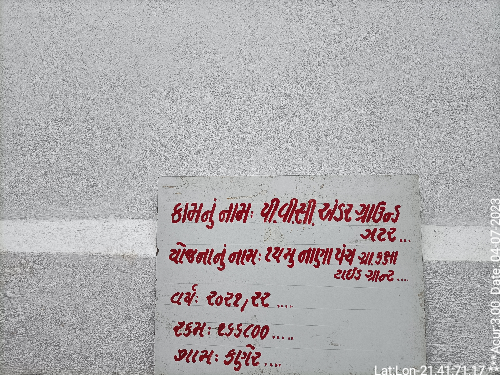 કામનું નામ: પી.વીસી. અંડર ગ્રાઉન્ડ
ગટર ....
યોજનાનું નામ: ૧૫મુ નાણા પંચ ગ્રા.કક્ષા
ટાઈડ ગ્રાન્ટ ....
વર્ષ: ૨૦૨૧/૨૨ ....
રકમ: ૨૬૬૮૦૦ ....
ગામ: કણેર ....
Lat:Lon-21.41:71.17
Date: 04/07/2023